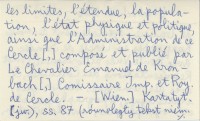 les limites, l'étendue, la popula-
tion, l'état physique et politique,
ainsi que l'Administration de ce
Cercle[,] composé et publié par
Le Chevalier Emanuel de Kron-
bach[,] Comissaire Imp. et Roy.
de Cercle. — [Wien.] Kartatyt.
ss. 87 (równoległy tekst niem.